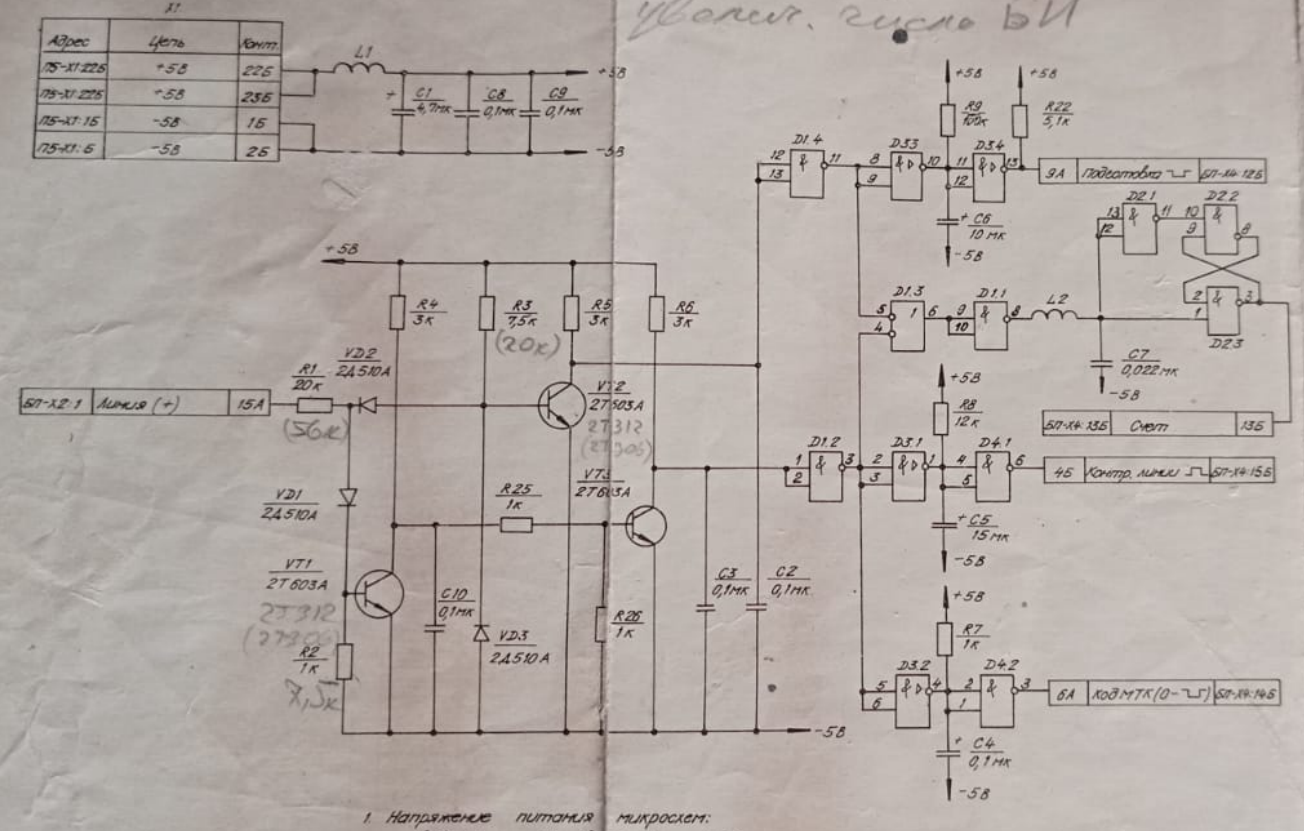 увелич. число БИ
X1
Адрес Цепь Конт.
П5-X1:22Б +5В 22Б
П5-X1:22Б +5В 23Б
П5-X1:1Б -5В 1Б
П5-X1:Б -5В 2Б
L1
+ C1 4,7мк
C8 0,1мк
C9 0,1мк
+5В
-5В
+5В
R4 3к
R3 7,5к
(20к)
R5 3к
R6 3к
VD2 2Д510А
БП-X2:1 Линия (+) 15А
R1 20к
(56к)
VT2 2Т603А
2Т312
(2Т306)
VD1 2Д510А
R25 1к
VT3 2Т603А
VT1 2Т603А
2Т312
(2Т306)
R2 1к
7,5к
C10 0,1мк
VD3 2Д510А
R26 1к
C3 0,1мк
C2 0,1мк
-5В
12 13 D1.4 & 11
8 9 D3.3 & 10
+5В
R9 100к
11 12 D3.4 & 13
+5В
R22 5,1к
9А Подготовка БП-X4:12Б
+ C6 10 мк
-5В
5 4 D1.3 1 6
9 10 D1.1 & 8
L2
C7 0,022мк
-5В
13 12 D2.1 & 11
10 9 D2.2 & 8
2 1 & 3 D2.3
БП-X4:13Б Счет 13Б
1 2 D1.2 & 3
2 3 D3.1 & 1
+5В
R8 12к
4 5 D4.1 & 6
4Б Контр. линии БП-X4:15Б
+ C5 15 мк
-5В
5 6 D3.2 & 4
+5В
R7 1к
2 1 D4.2 & 3
6А Код МТК (0- ) БП-X4:14Б
+ C4 0,1 мк
-5В
1. Напряжение питания микросхем: